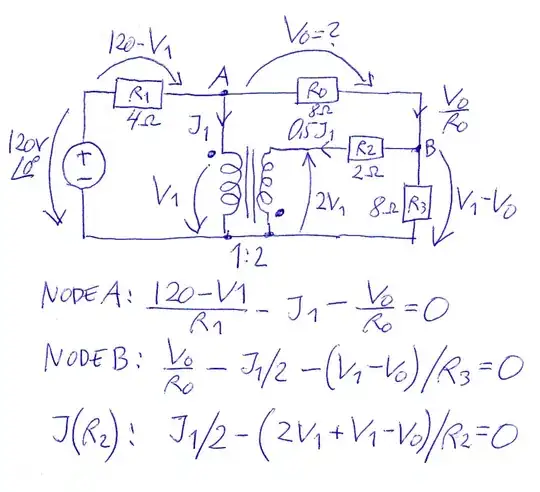 120-V1
V0=?
A
R1
4Ω
R0
8Ω
V0/R0
J1
0,5J1
R2
2Ω
B
120V
/0°
+
-
V1
2V1
8Ω
R3
V1-V0
1:2
NODE A: (120-V1)/R1 - J1 - V0/R0 = 0
NODE B: V0/R0 - J1/2 - (V1-V0)/R3 = 0
J(R2): J1/2 - (2V1+V1-V0)/R2 = 0